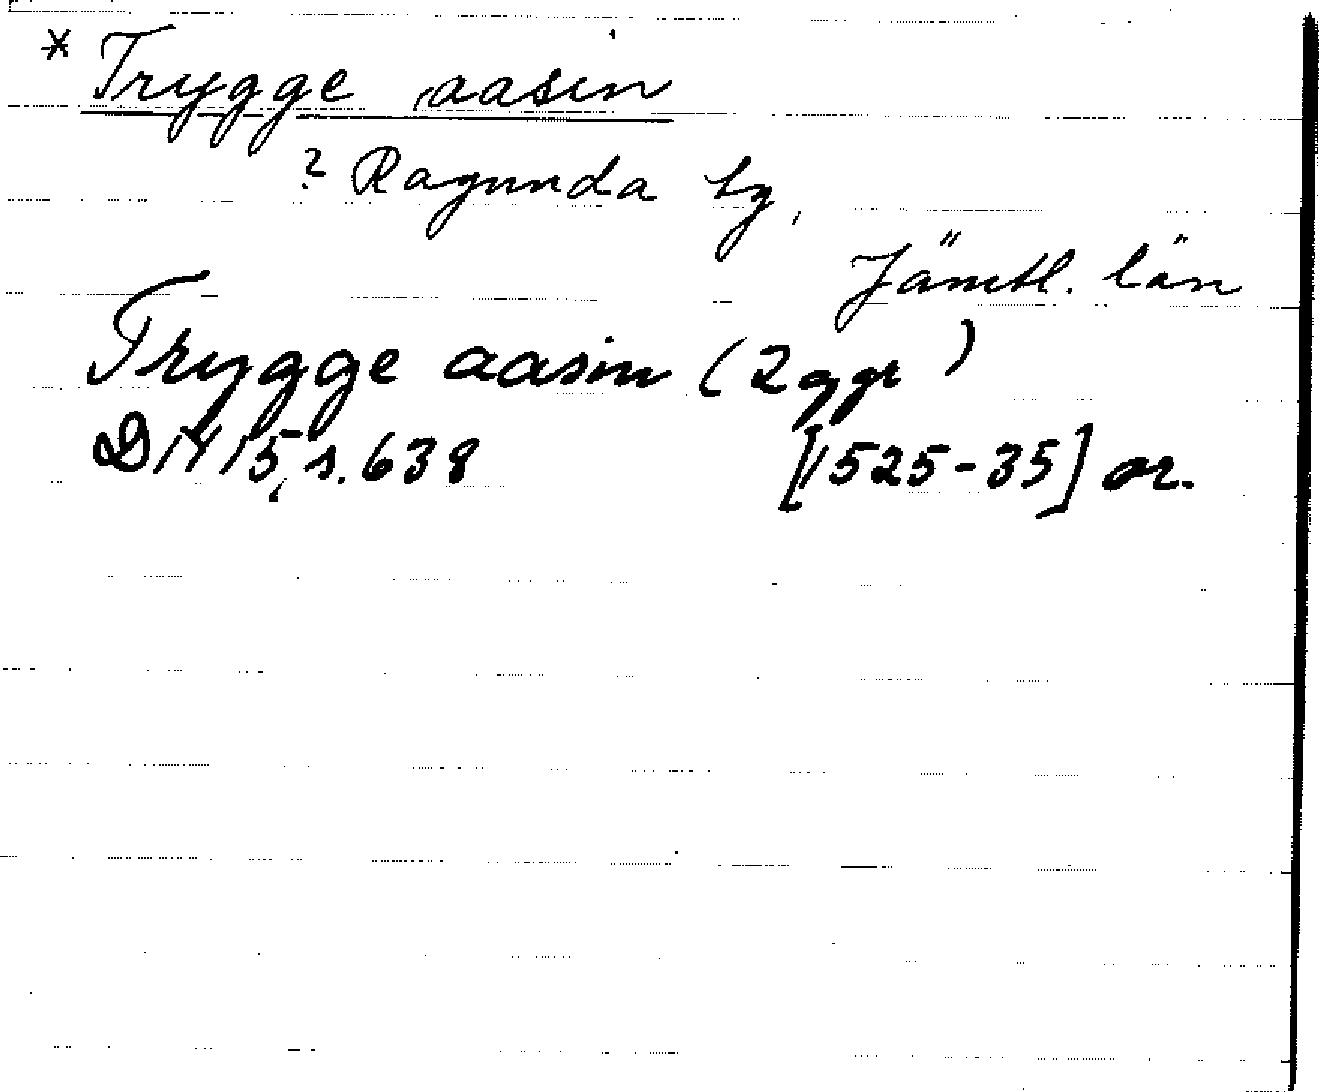 * Trygge aasen
? Ragunda tg,
Jämtl. län
Trygge aasin (2 ggr)
DN 15, s. 638 [1525-35] or.